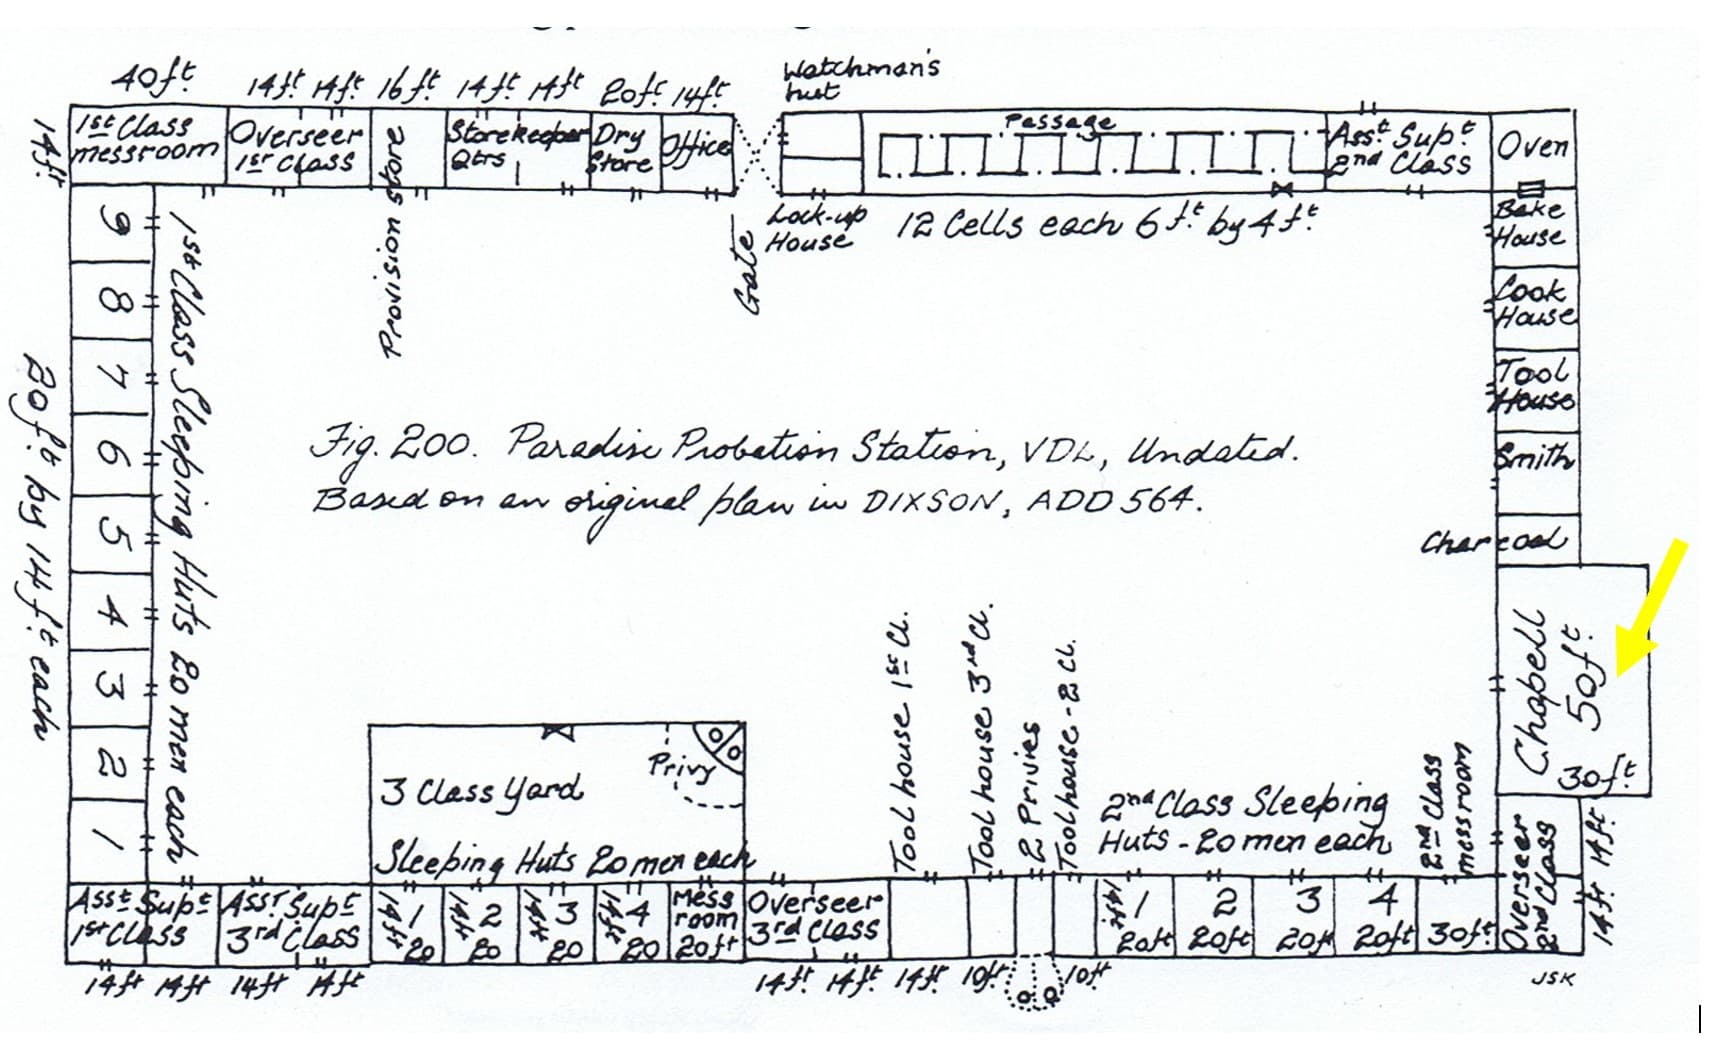 40ft.
14ft. 14ft. 16ft. 14ft. 14ft 20ft. 14ft.
Watchman's
hut
14ft.
1st Class
messroom
Overseer
1st Class
Provision store
Storekeeper
Qtrs
Dry
Store
Office
Gate
Lock-up
House
Passage
12 Cells each 6 ft. by 4 ft.
Asst. Supt.
2nd Class
Oven
Bake
House
Cook
House
Tool
House
Smith
Charcoal
Chapell
50ft.
30ft.
Overseer
2nd Class
14ft. 14ft.
9
8
7
6
5
4
3
2
1
1st Class Sleeping Huts 20 men each
20ft. by 14ft. each
Fig. 200. Paradise Probation Station, VDL, Undated.
Based on an original plan in DIXSON, ADD 564.
3 Class Yard
Privy
Sleeping Huts 20 men each
Tool house 1st Cl.
Tool house 3rd Cl.
2 Privies
Tool house - 2 Cl.
2nd Class Sleeping
Huts - 20 men each
2nd Class
messroom
Asst Supt
1st Class
Asst Supt
3rd Class
14ft 1
20
14ft 2
20
14ft 3
20
14ft 4
20
Mess
room
20ft
Overseer
3rd Class
14ft. 1
20ft
2
20ft
3
20ft
4
20ft
30ft.
14ft 14ft 14ft 14ft
14ft. 14ft. 14ft. 10ft. 10ft
JSK